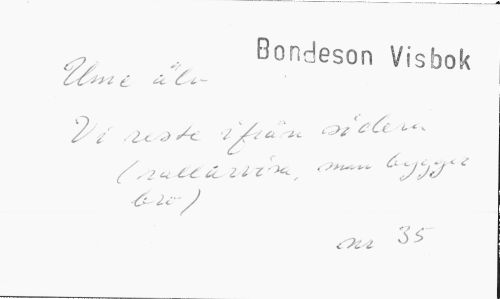 Bondeson Visbok
Ume älv
Vi reste ifrån södern
(rallarvisa, man bygger
bro)
nr 35